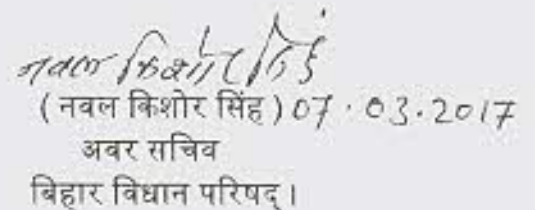 नवल किशोर सिंह
( नवल किशोर सिंह ) 07.03.2017
अवर सचिव
बिहार विधान परिषद् ।